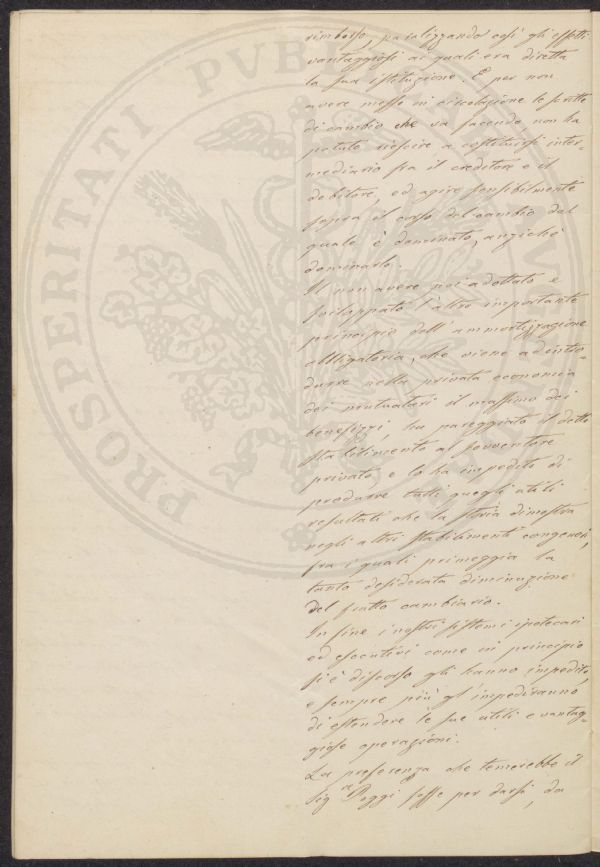 rimborso, paralizzando così gli effetti
vantaggiosi ai quali era diretta
la sua istituzione. E per non
avere messo in circolazione le scritte
di cambio che va facendo non ha
potuto riescire a costituirsi inter-
mediario fra il creditore e il
debitore, ed agire sensibilmente
sopra il corso del cambio dal
quale è dominato, anziché
dominarlo.
Il non avere poi adottato e
sviluppato l'altro importante
principio dell'ammortizzazione
obbligatoria, che viene ad intro-
durre nella privata economia
dei mutuatari il massimo dei
benefizzi, ha pareggiato il detto
Stabilimento al sovventore
privato e lo ha impedito di
produrre tutti quegli utili
resultati che la storia dimostra
negli altri stabilimenti congeneri,
fra i quali primeggia la
tanto desiderata diminuzione
del frutto cambiario.
In fine i nostri sistemi ipotecari
ed esecutivi come in principio
si è discorso gli hanno impedito,
e sempre più gl'impediranno
di estendere le sue utili e vantag-
giose operazioni.
La preferenza che temerebbe il
Sig.re Poggi fosse per darsi, da
PROSPERITATI PVBLICAE